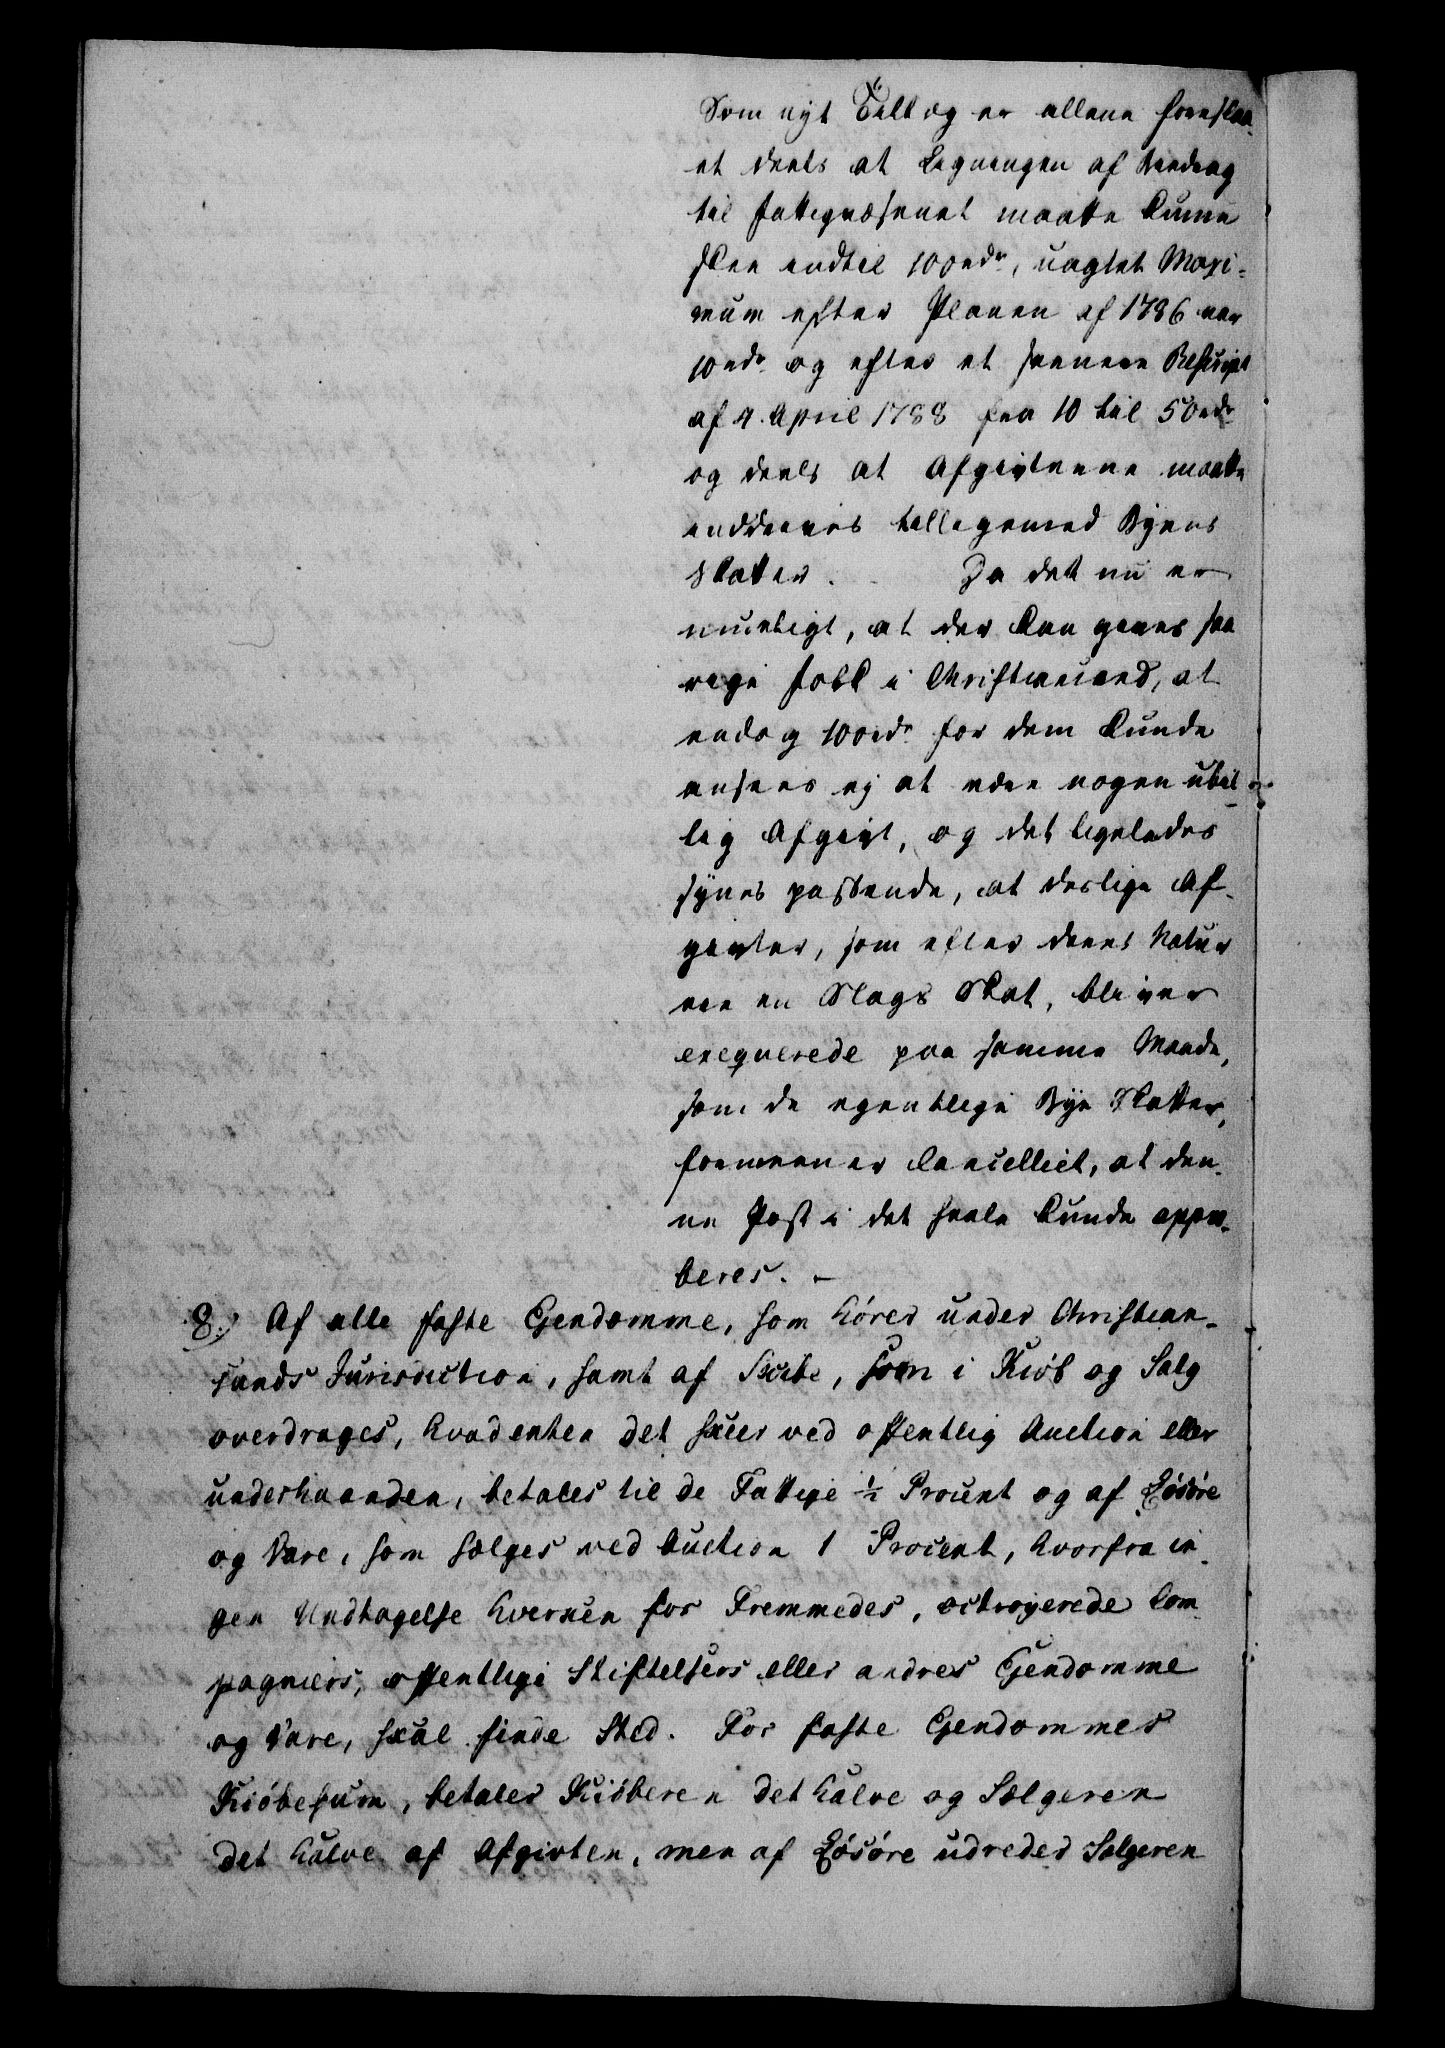 Som nyt Tillæg er allene foreslaa-
et deels at Ligningen af Beedrag
til Fattigvæsenet maatte kunne
skee indtil 100rdr, uagtet Maxi-
mum efter Planen af 1786 var
10rdr og efter et senere Rescript
af 4. April 1788 fra 10 til 50rdr
og deels at Afgivterne maatte
inddrives tilligemed Byens
Skatter. Da det nu er
mueligt, at der kan gives saa
rige Folk i Christiansand, at
endog 100rdr for dem kunde
ansees ej at være nogen ubil-
lig Afgivt, og det ligeledes
synes passende, at deslige Af-
givter, som efter deres Natur
ere en Slags Skat, bliver
exeqverede paa samme Maade,
som de egentlige Bye Skatter,
formeener Cancelliet, at den-
ne Post i det heele kunde appro-
beres. -
8.) Af alle faste Ejendomme, som hører under Christian-
sands Jurisdiction, samt af Skibe, som i Kiøb og Salg
overdrages, hvad enten det skeer ved offentlig Auction eller
underhaanden, betales til de Fattige ½ Procent og af Løsøre
og Vare, som sælges ved Auction 1 Procent, hvorfra in-
gen Undtagelse hverken for Fremmedes, octroyerede Com-
pagniers, offentlige Stiftelsers eller andres Ejendomme
og Vare, skal finde Sted. For faste Ejendommes
Kiøbesum, betaler Kiøberen det halve og Sælgeren
det halve af Afgivten, men af Løsøre udreder Sælgeren